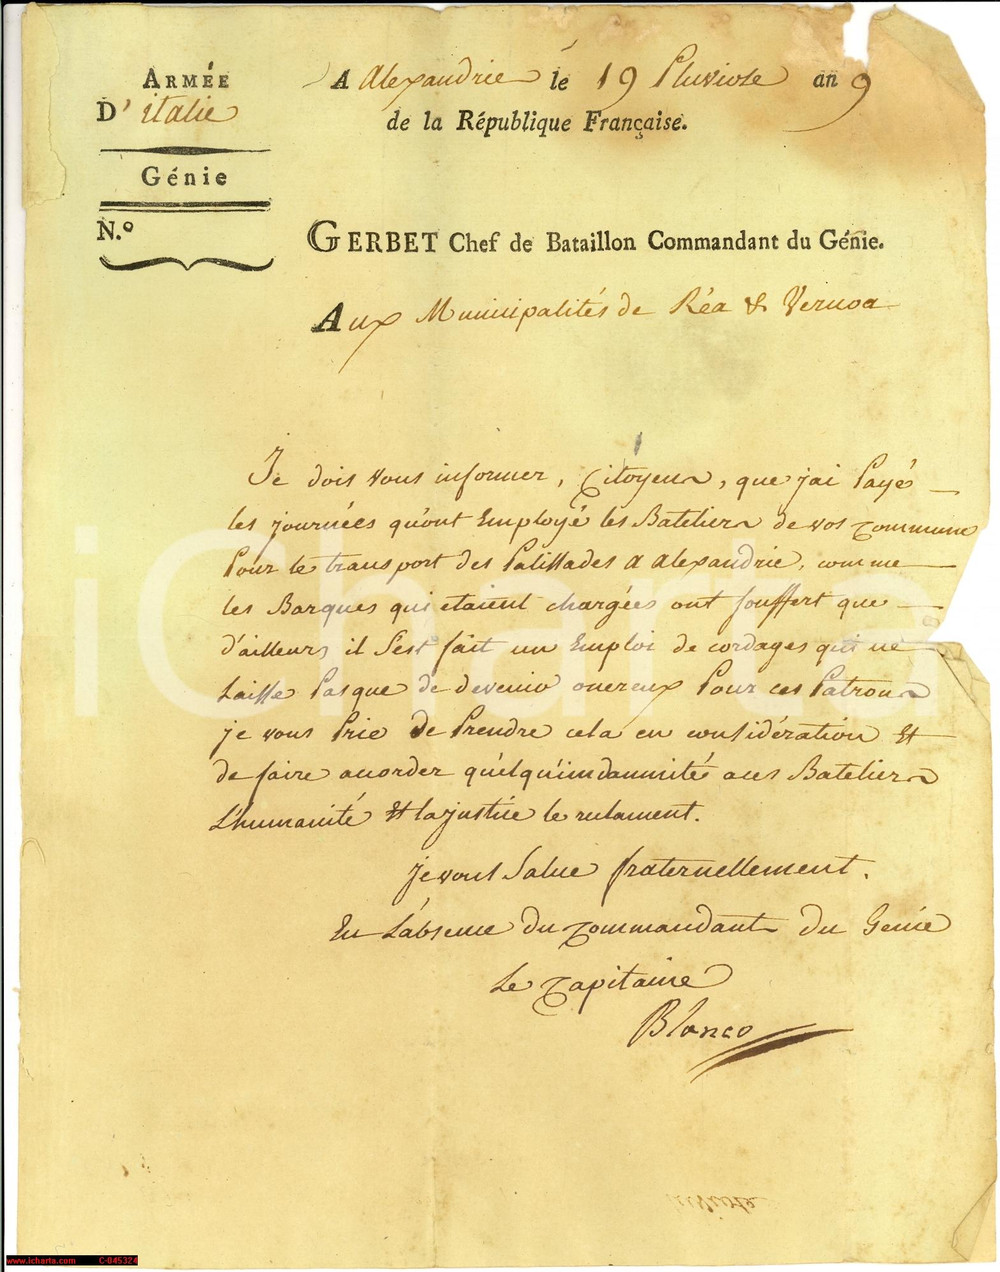 ARMÉE
D' italie
Génie
N.º
A Alexandrie le 19 Pluviose an 9
de la République Française.
GERBET Chef de Bataillon Commandant du Génie.
Aux Municipalités de Réa & Vernoa
Je dois vous informer, Citoyens, que j'ai Payé
les journées qu'ont Employé les Bateliers de vos Commune
Pour le transport des Palissades a Alexandrie, comme
les Barques qui etaient chargées ont souffert que
d'ailleurs il S'est fait un Emploi de cordages qui ne
Laisse Pas que de devenir onereux Pour ces Patrons
je vous Prie de Prendre cela en considération Et
de faire accorder quelqu'imdamnité aus Bateliers
L'humanité Et la justice le reclament.
Je vous Salue fraternellement.
En L'absence du Commandant du Genie
Le Capitaine
Blanco
iCharta
www.icharta.com C-045324